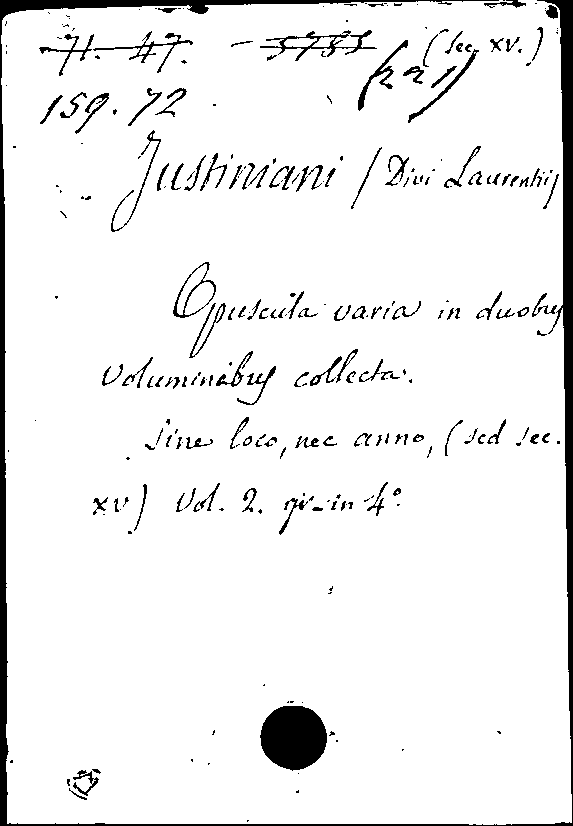 71. 47. - 5785 (sec. xv.)
(221)
159. 72
Justiniani / Divi Laurentii /
Opuscula varia in duobus
Voluminibus collecta.
Sine loco, nec anno, (sed sec.
xv) Vol. 2. gr. in 4º.